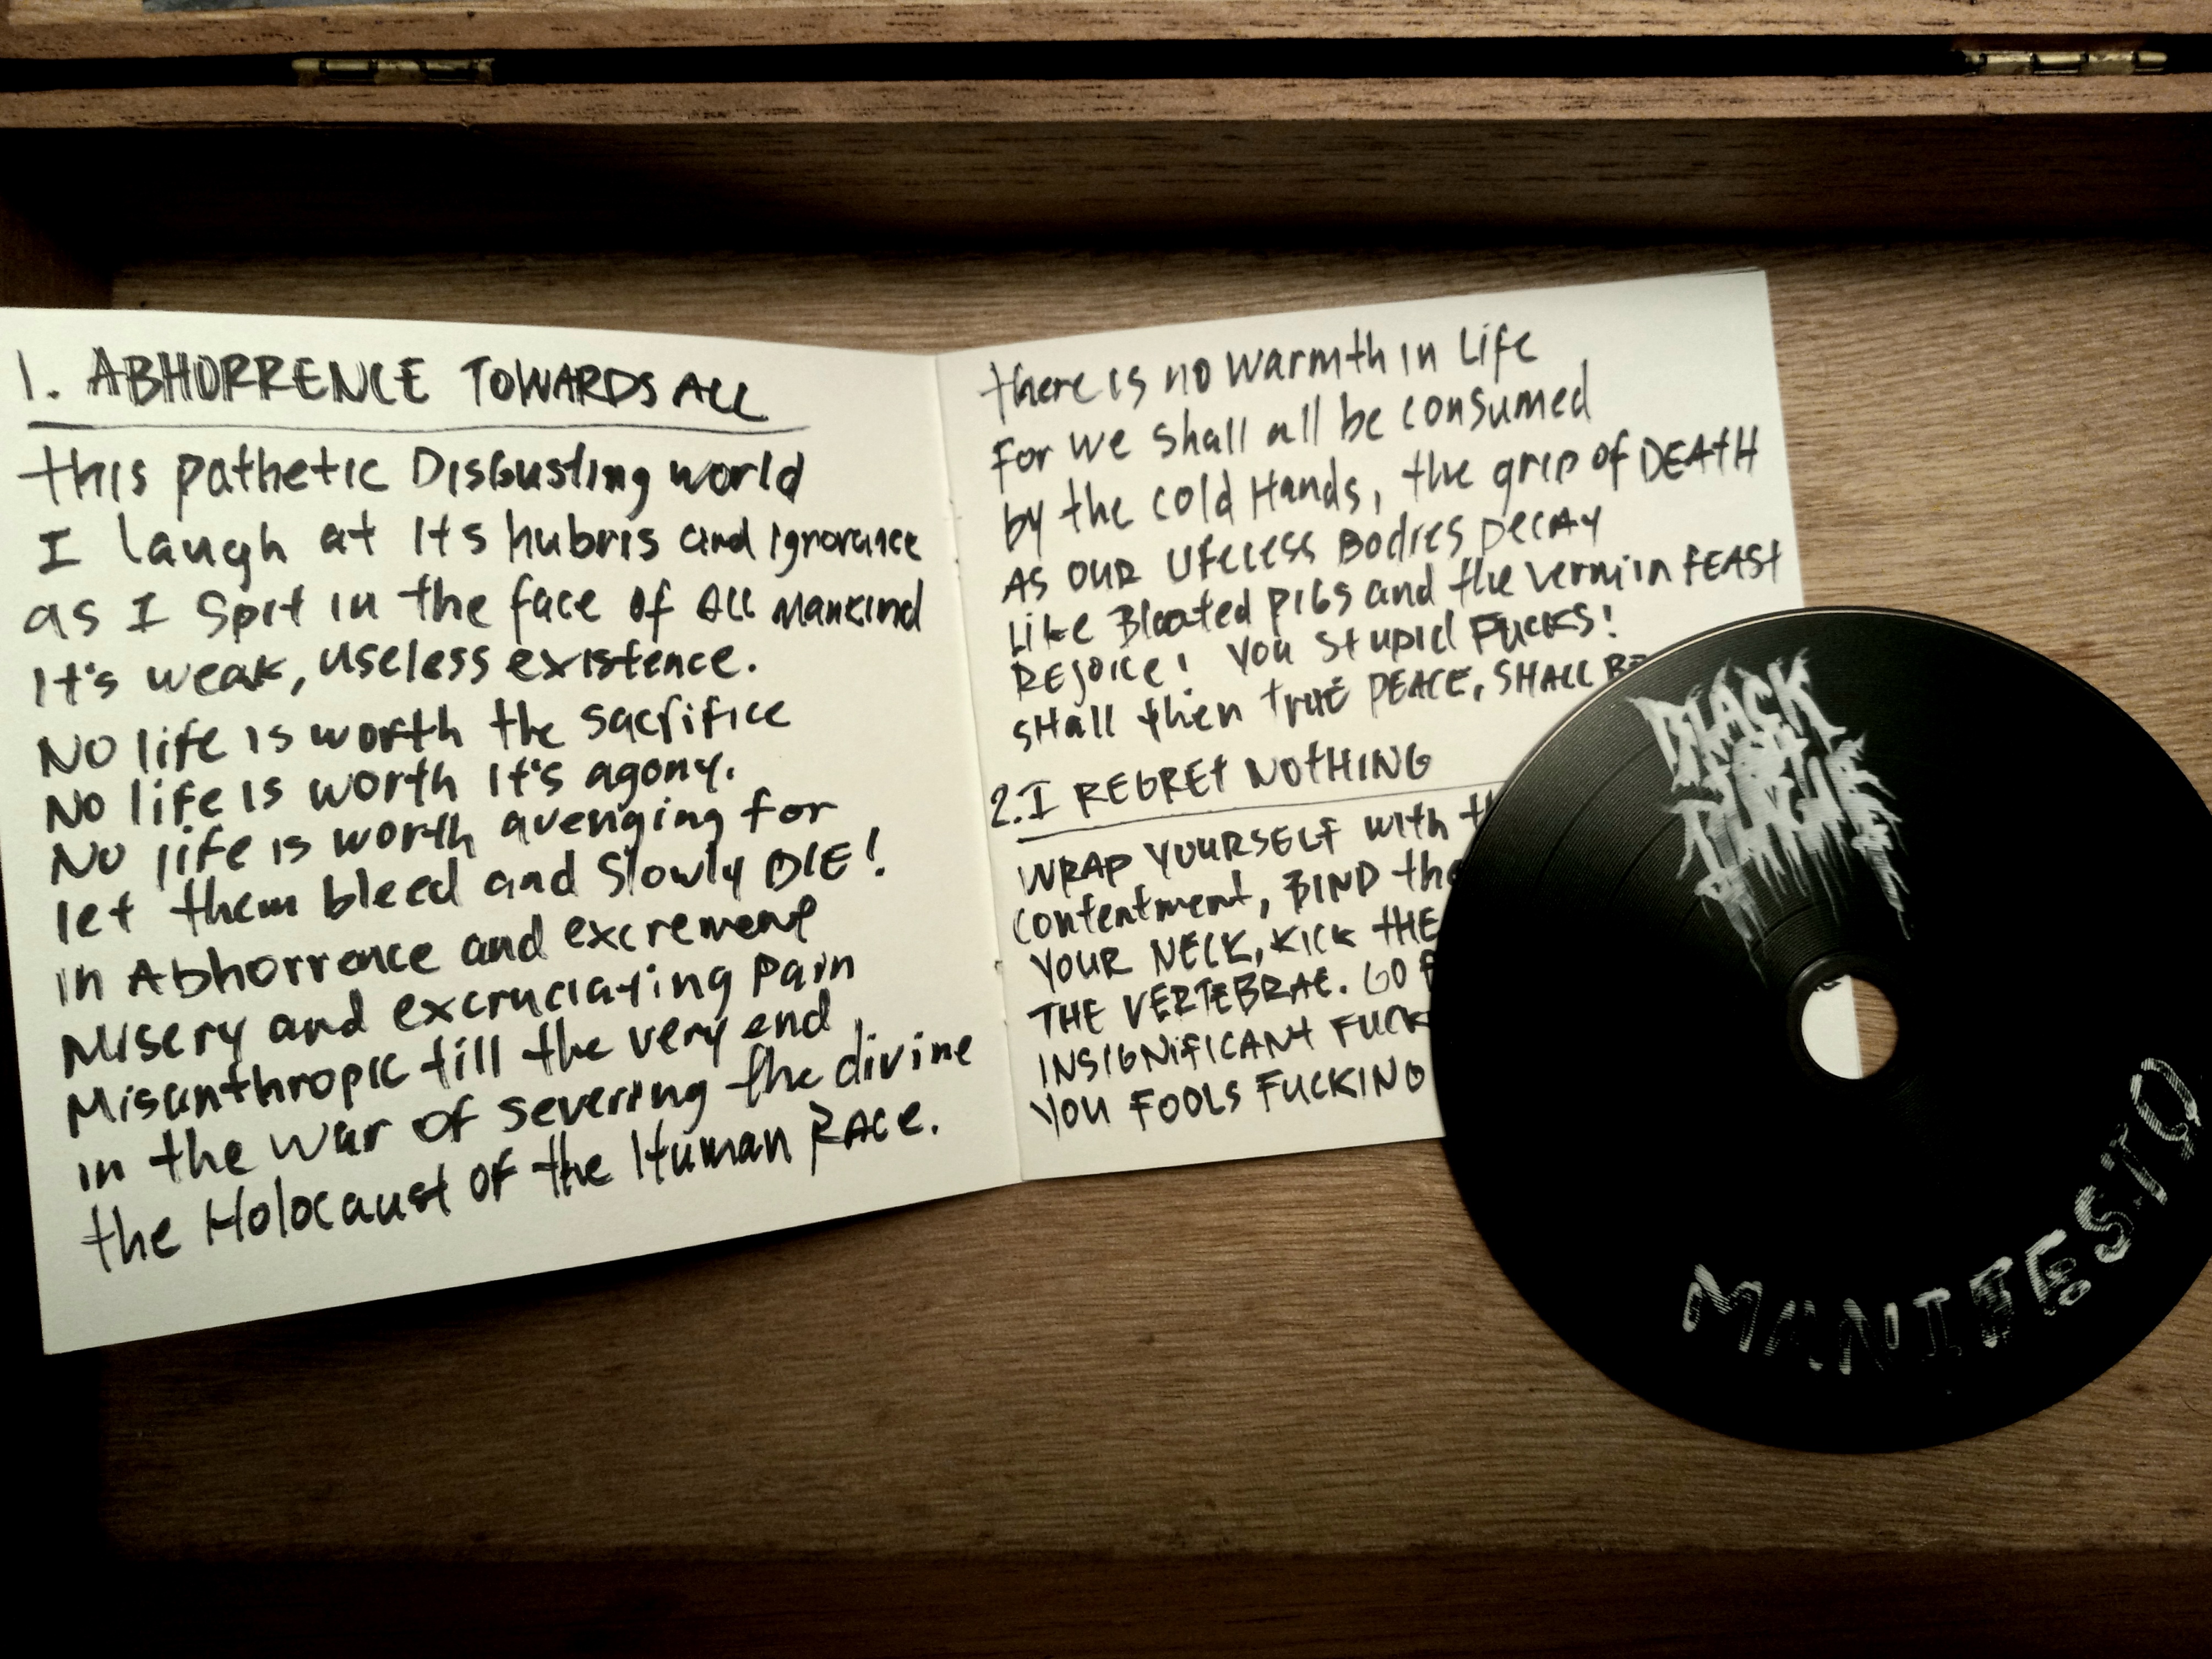 1. ABHORRENCE TOWARDS ALL
this pathetic Disgusting world
I laugh at its hubris and ignorance
as I spit in the face of All Mankind
It's weak, useless existence.
No life is worth the sacrifice
No life is worth it's agony.
No life is worth avenging for
let them bleed and slowly DIE!
in Abhorrence and excrement
Misery and excruciating pain
Misanthropic till the very end
in the war of severing the divine
the Holocaust of the Human RACE.
there is no warmth in Life
For we shall all be consumed
by the cold Hands, the grip of DEATH
AS OUR LIFELESS BODIES DECAY
Like Bloated pigs and the vermin FEAST
REJOICE! You stupid FUCKS!
SHall then TRUE PEACE, SHALL BE
2. I REGRET NOTHING
WRAP YOURSELF with
contentment, BIND the
YOUR NECK, KICK THE
THE VERTEBRAE. GO
INSIGNIFICANT FUCK
YOU FOOLS FUCKING
BLACK
PLAGUE
MANIFESTO